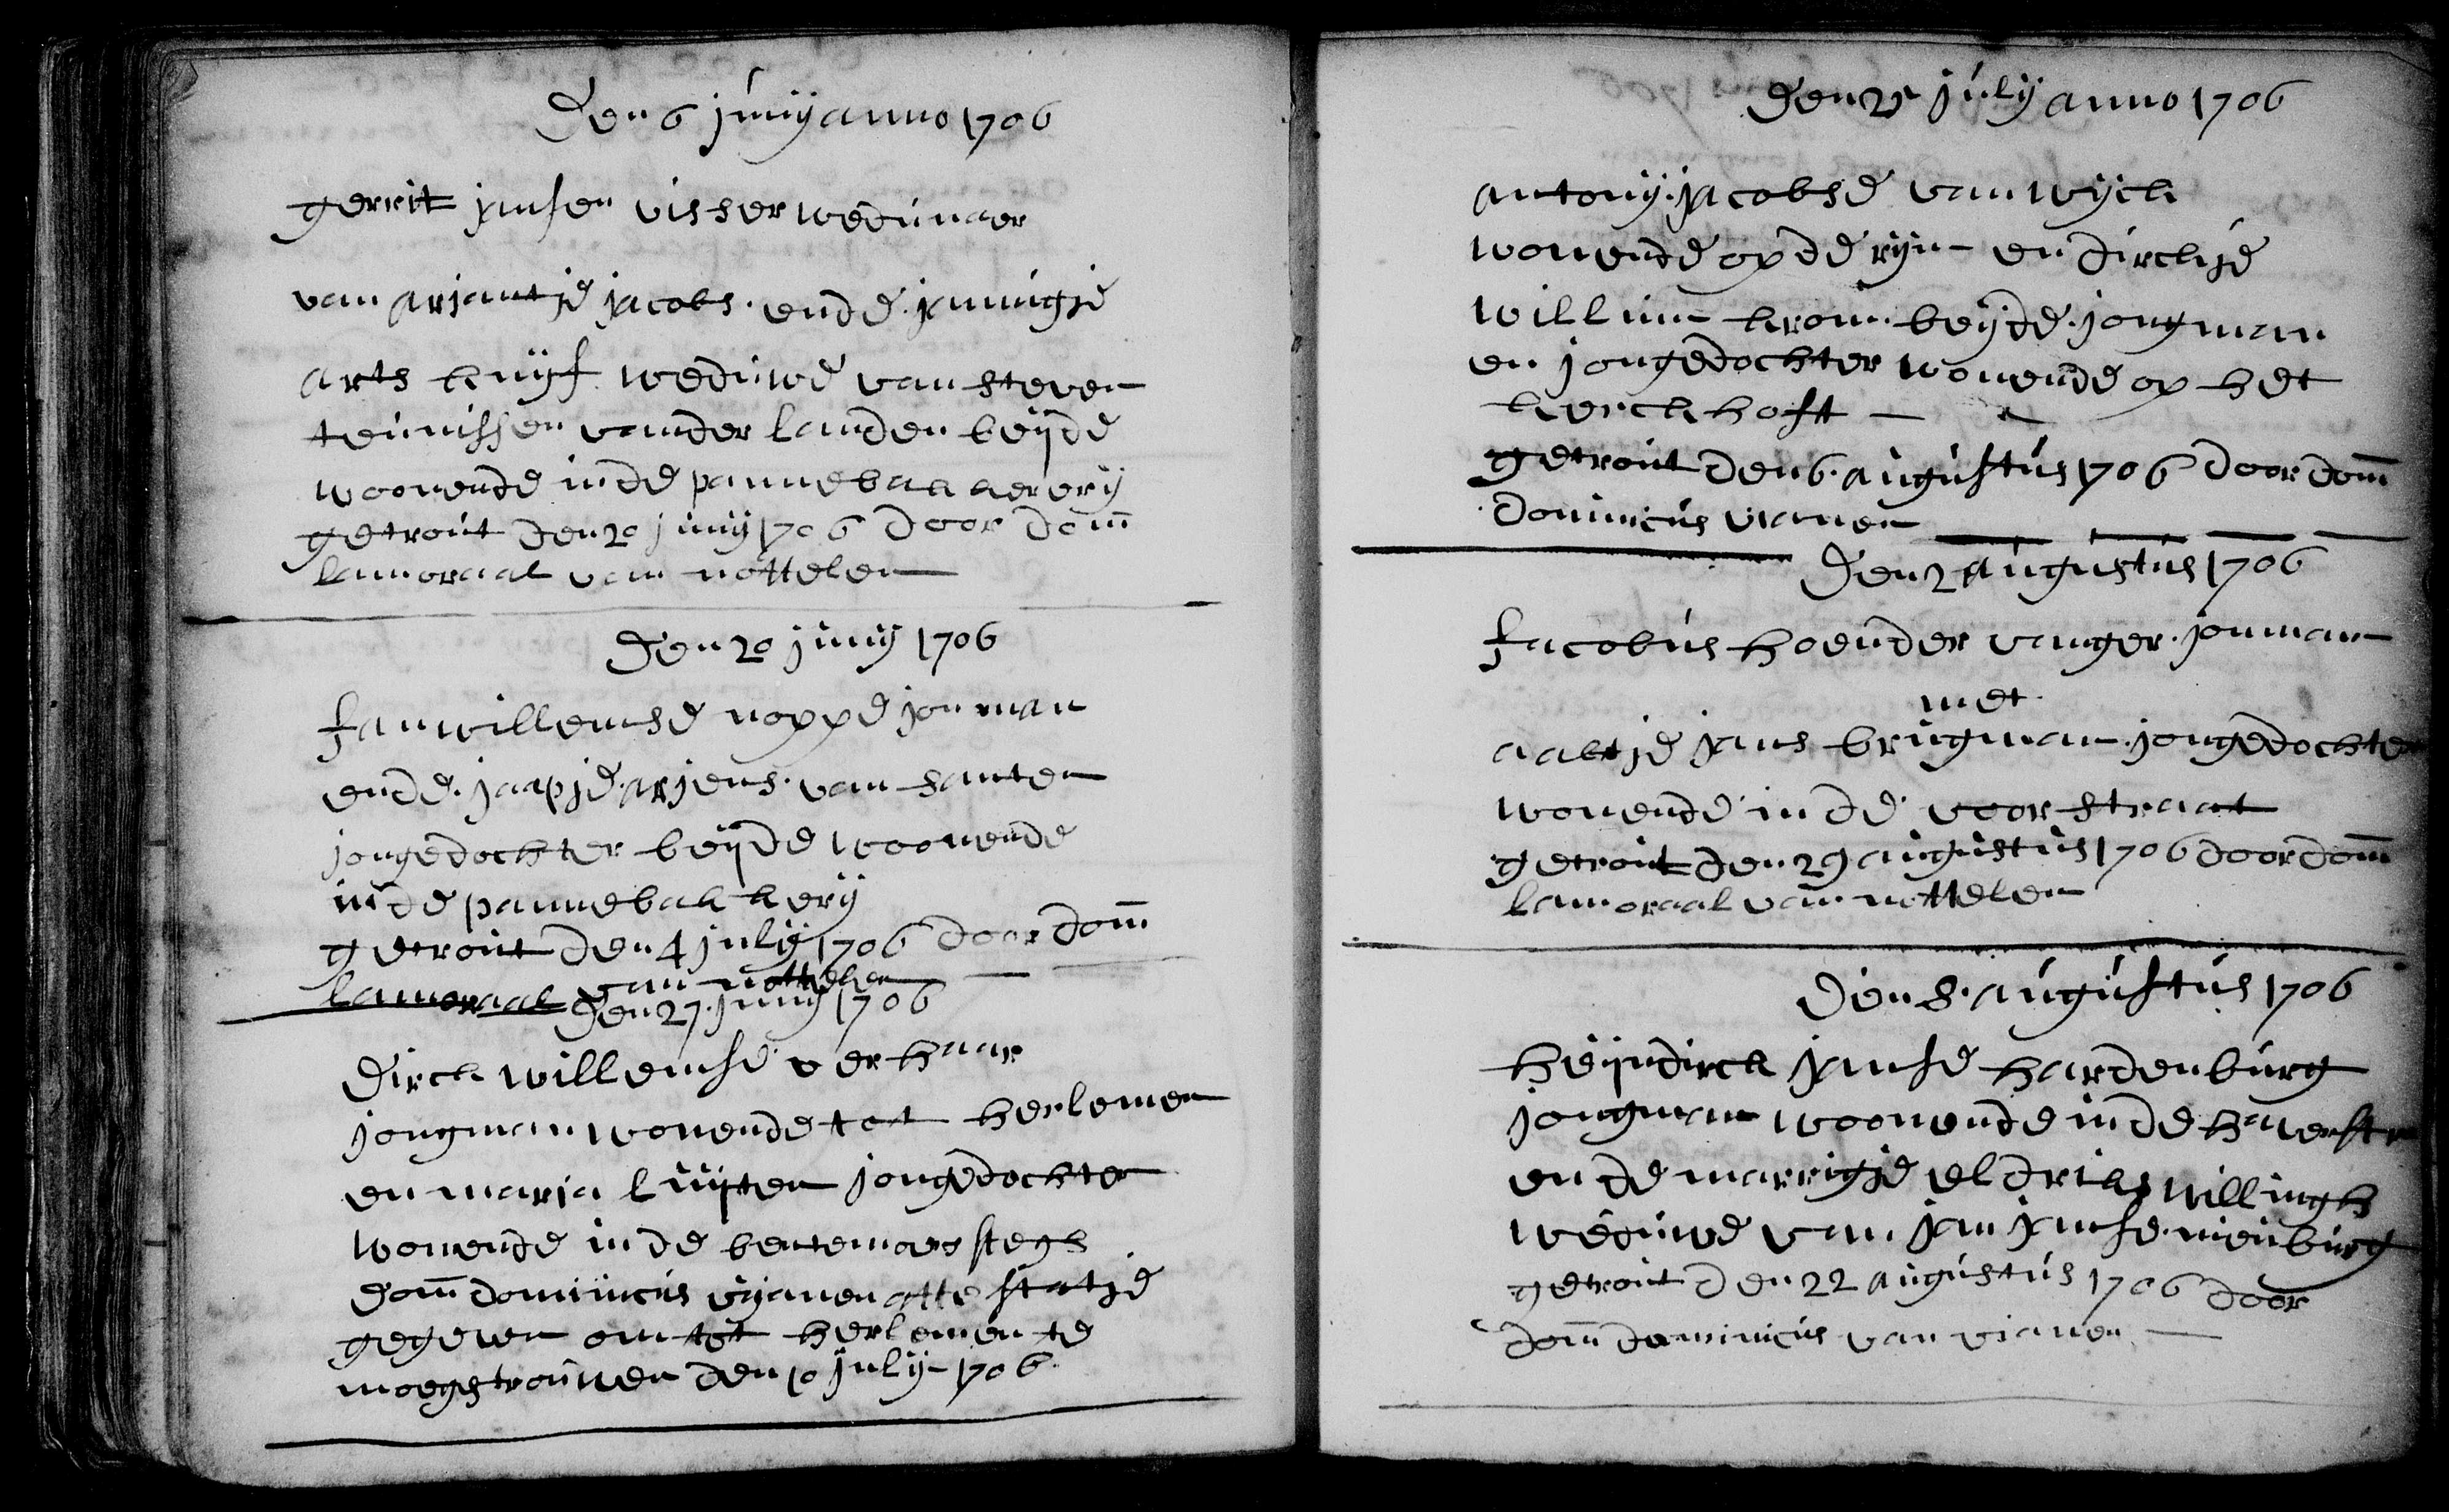 Den 6 junij anno 1706
gerrit jansen visser wedunaer
van arjantje jacobs. ende. jannigje
arts kuijf weduwe van steven
teunissen vander landen beijde
woonende inde pannebakkererij
getrout den 20 junij 1706 door dom
lamoraal van nottelen
Den 20 junij 1706
Jan willemse noppe jonman
ende. jaapje arjens. van santen
jongedochter beijde woonende
in de pannebakkerij
getrout den 4 julij 1706 door dom
lamoraal van nottelen
Den 27. junij 1706
Dirck willemse verhaar
jongman wonende tot herlemen
en marja luijten jongedochter
wonende in de steegh
dom dominicus vijanen attestatje
gegeven om tot herlemen te
moegetrouwen den 10 julij 1706
Den 25 julij anno 1706
antonij. jacobse van wijck
wonende op de rijn en dirckje
willim krom. beijde. jongman
en jongedochter wonende op het
kerckhoft
getrout den 6. augustus 1706 door dom
dominicus vianen
Den 2 augustus 1706
Jacobus hoender vanger. jonman
met
aaltje jans brugman. jongedochter
wonende in de voorstraat
getrout den 29 augustus 1706 door dom
lamoraal van nottelen
Den 8. augustus 1706
heijndirck janse hardenburg
jongman woonende in de haverstr
en de marrigje eldriks willingh
weduwe van jan janse. nieuburg
getrout den 22 augustus 1706 door
dom dominicus van vianen